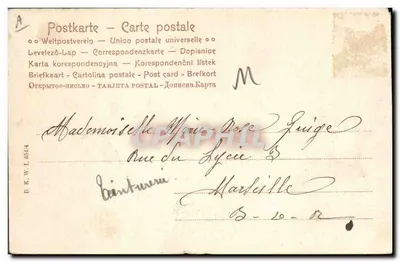 A
Postkarte – Carte postale
Weltpostverein – Union postale universelle
Levelező-Lap – Correspondenzkarte – Dopisnice
Karta korespondencyjna – Korespondenční lístek
Briefkaart – Cartolina postale – Post card – Brefkort
Открытое письмо – TARJETA POSTAL – Дописна Карта
M
Mademoiselle Rose
Rue du Lycée
Marseille
B-du-R
Teinturerie
B. K. W. I.